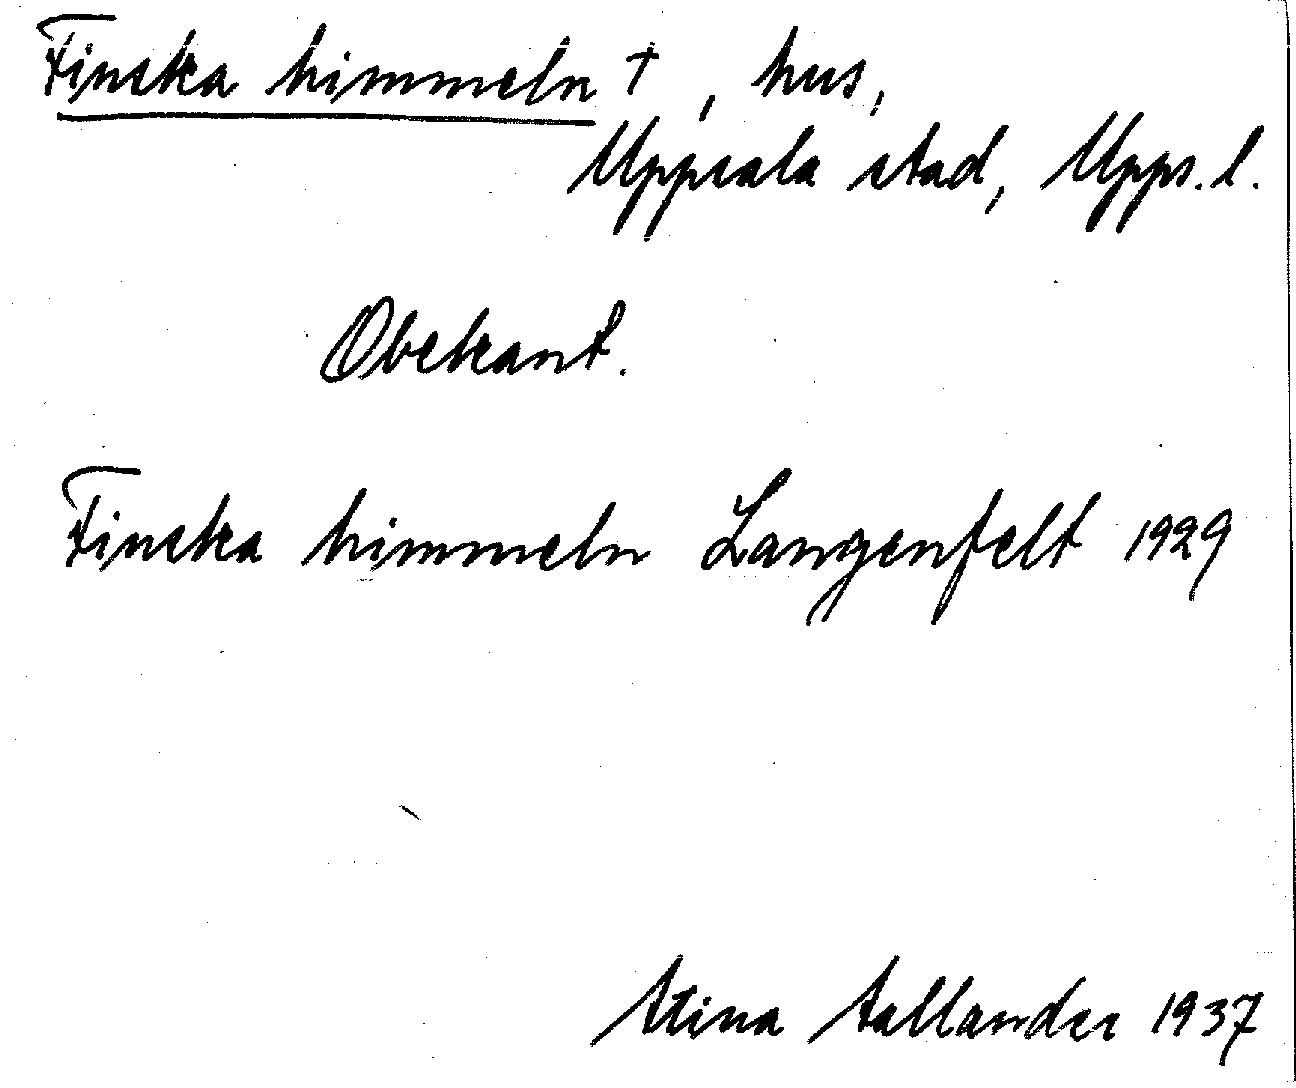 Finska himmeln †, hus,
Uppsala stad, Upps. l.
Obekant.
Finska himmeln Langenfelt 1929
Stina Sallander 1937